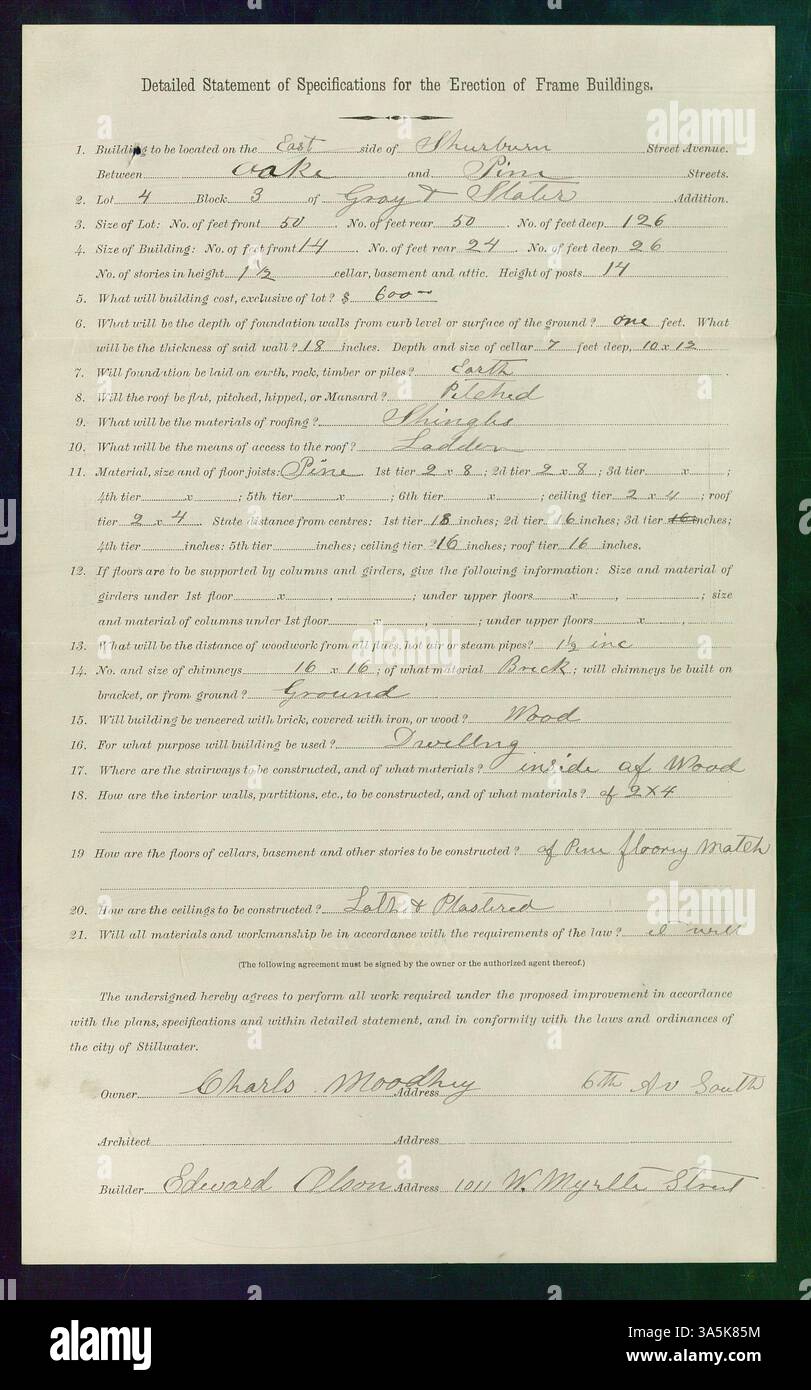 Detailed Statement of Specifications for the Erection of Frame Buildings.
1. Building to be located on the East side of Shurburn Street Avenue.
Between Oake and Pine Streets.
2. Lot 4 Block 3 of Gray & Slater Addition.
3. Size of Lot: No. of feet front 50. No. of feet rear 50. No. of feet deep 126
4. Size of Building: No. of feet front 14. No. of feet rear 24. No. of feet deep 26
No. of stories in height 1 1/2 cellar, basement and attic. Height of posts 14
5. What will building cost, exclusive of lot? $ 600
6. What will be the depth of foundation walls from curb level or surface of the ground? one feet. What
will be the thickness of said wall? 18 inches. Depth and size of cellar 7 feet deep, 10 x 12
7. Will foundation be laid on earth, rock, timber or piles? Earth
8. Will the roof be flat, pitched, hipped, or Mansard? Pitched
9. What will be the materials of roofing? Shingls
10. What will be the means of access to the roof? Ladder
11. Material, size and of floor joists: Pine 1st tier 2 x 8; 2d tier 2 x 8; 3d tier x ;
4th tier x ; 5th tier x ; 6th tier x ; ceiling tier 2 x 4; roof
tier 2 x 4. State distance from centres: 1st tier 18 inches; 2d tier 16 inches; 3d tier 16 inches;
4th tier inches: 5th tier inches; ceiling tier 16 inches; roof tier 16 inches.
12. If floors are to be supported by columns and girders, give the following information: Size and material of
girders under 1st floor x , ; under upper floors x , ; size
and material of columns under 1st floor x , ; under upper floors x ,
13. What will be the distance of woodwork from all flues, hot air or steam pipes? 1 1/2 inc
14. No. and size of chimneys 16 x 16; of what material Brick; will chimneys be built on
bracket, or from ground? Ground
15. Will building be veneered with brick, covered with iron, or wood? Wood
16. For what purpose will building be used? Dwellng
17. Where are the stairways to be constructed, and of what materials? inside of Wood
18. How are the interior walls, partitions, etc., to be constructed, and of what materials? of 2X4
19 How are the floors of cellars, basement and other stories to be constructed? of Pine floorig Match
20. How are the ceilings to be constructed? Lath & Plastered
21. Will all materials and workmanship be in accordance with the requirements of the law? it will
(The following agreement must be signed by the owner or the authorized agent thereof.)
The undersigned hereby agrees to perform all work required under the proposed improvement in accordance
with the plans, specifications and within detailed statement, and in conformity with the laws and ordinances of
the city of Stillwater.
Owner Charls Moodhey Address 6th Av South
Architect Address
Builder Edward Olson Address 1011 W. Myrtle Street
alamy
Image ID: A5K85M
www.alamy.com